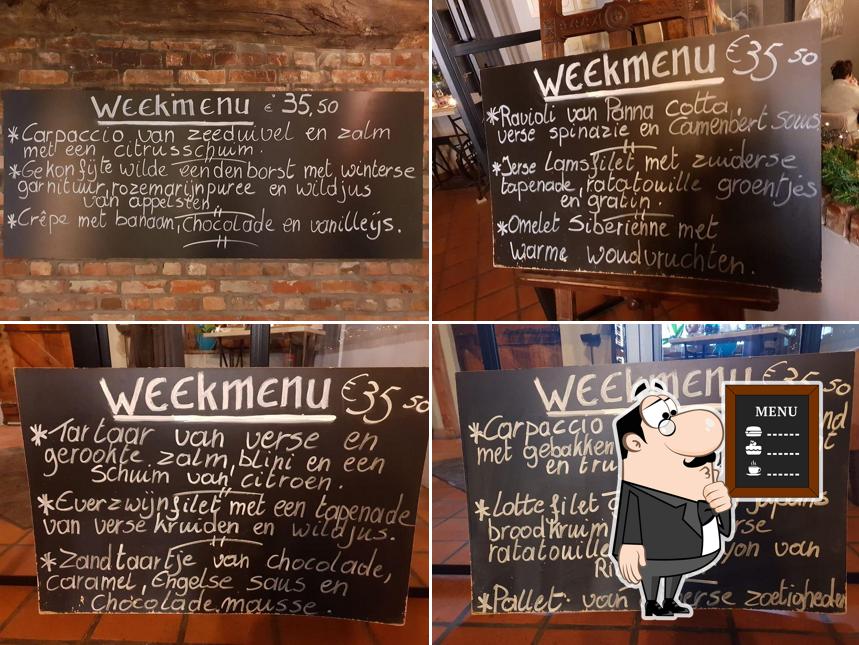 WEEKMENU € 35,50
*Carpaccio van zeeduivel en zalm
met een citrusschuim.
*Gekonfijte wilde eendenborst met winterse
garnituur, rozemarijnpuree en wildjus
van appelsien.
*Crêpe met banaan, chocolade en vanilleijs.
WEEKMENU €35,50
*Ravioli van Panna Cotta,
verse spinazie en Camenbert saus.
*Ierse Lamsfilet met zuiderse
tapenade, ratatouille groentjes
en gratin.
*Omelet Siberienne met
warme woudvruchten.
WEEKMENU €35 50
*Tartaar van verse en
gerookte zalm, blini en een
Schuim van citroen.
*Everzwijnfilet met een tapenade
van verse kruiden en wildjus.
*Zandtaartje van chocolade,
caramel, Engelse saus en
Chocolade mousse.
WEEKMENU €35 50
*Carpaccio
met gebakken
en
*Lotte filet
broodkruim
ratatouille van
*Pallet van zoetigheden
MENU